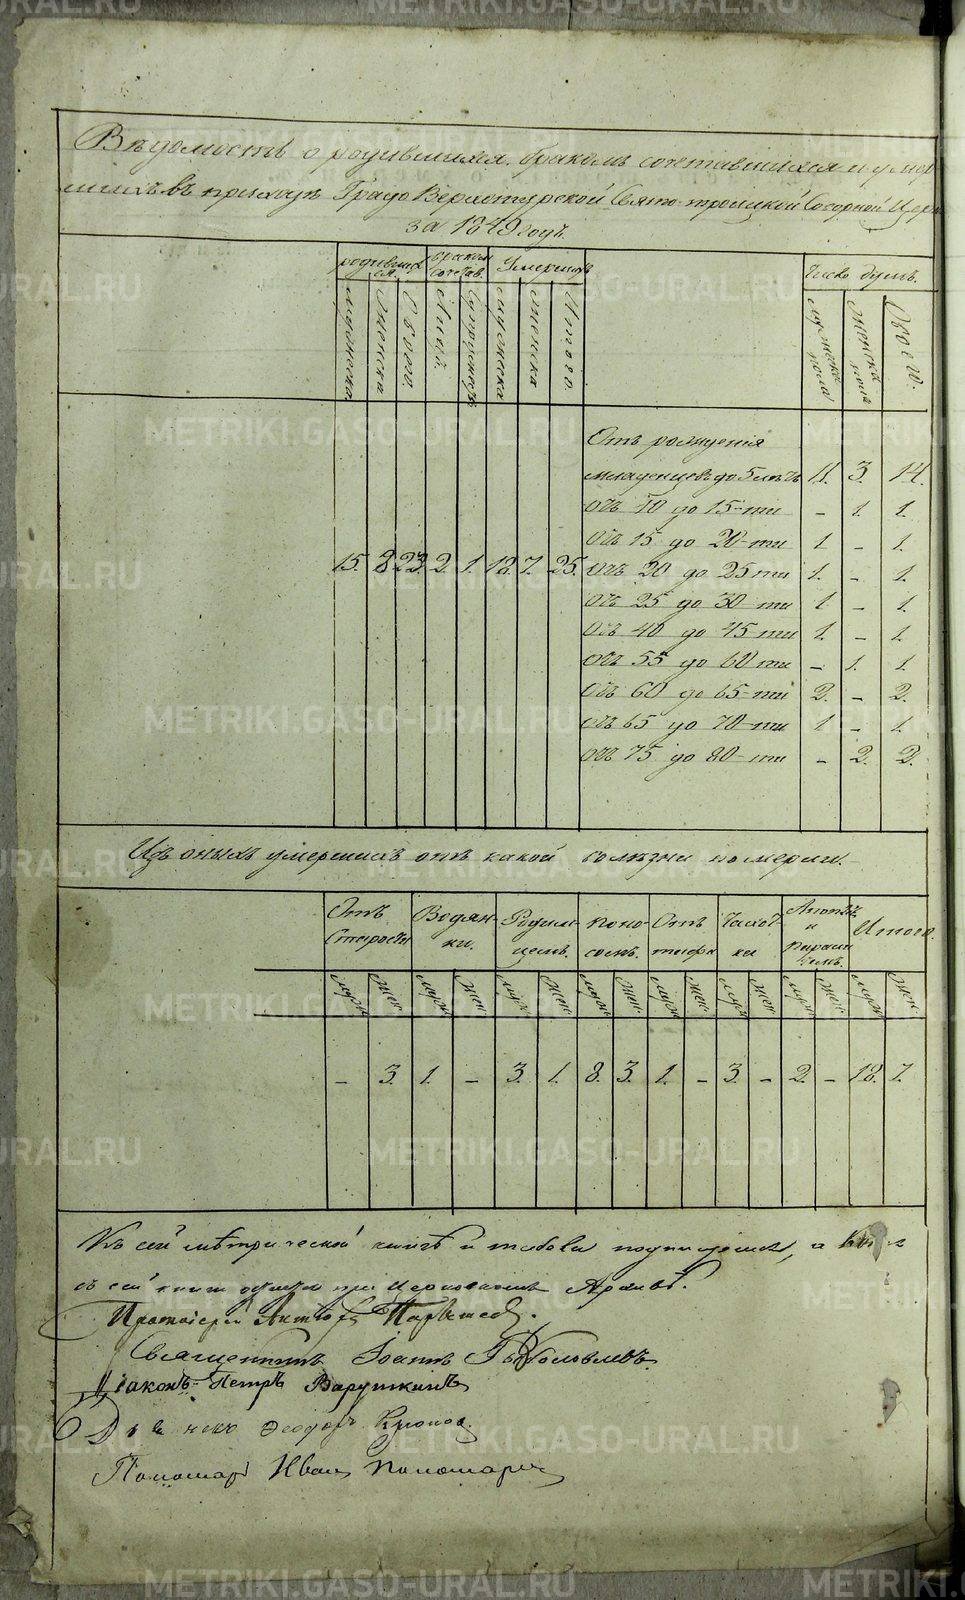 Вѣдомость о родившихся, бракомъ сочетавшихся и умер-
шихъ въ приходѣ Градо Верхотурской Свято-троицкой Соборной Церкви
за 18 9 годъ.
родивших ся. бракомъ сочетав. Умершихъ Число душъ.
мужеска женска Обоего Лицъ Супружествъ мужеска женска Итого мужеска пола женска пола Обоего.
Отъ рожденія
младенцевъ до 5 лѣтъ 11. 3. 14.
отъ 10 до 15-ти - 1. 1.
отъ 15 до 20-ти 1 - 1.
15. 8 23. 2. 1. 18. 7. 25. отъ 20 до 25 ти 1. - 1.
отъ 25 до 30-ти 1 - 1.
отъ 40 до 45 ти 1. - 1.
отъ 55 до 60 ти - 1. 1.
отъ 60 до 65-ти 2. - 2.
отъ 65 до 70-ти 1 - 1.
отъ 75 до 80-ти - 2. 2.
Изъ оныхъ умершихъ отъ какой болѣзни померли.
Отъ Старости Водян-ки. Родим-цемъ. Поно-сомъ. Отъ тифа Чахот-ки и Итого.
муж жен муж жен муж жен муж жен муж жен муж жен муж жен муж жен
- 3. 1. - 3. 1. 8. 3. 1. - 3. - 2. - 18. 7.
Къ сей метрической книгѣ и табели подписуемся, а
съ сей книги при Церковномъ Архивѣ
Протоіерей
Священникъ Іоаннъ
Діаконъ Петръ Варушкинъ
Феодоръ
Пономарь Иванъ Пономаревъ
METRIKI.GASO-URAL.RU